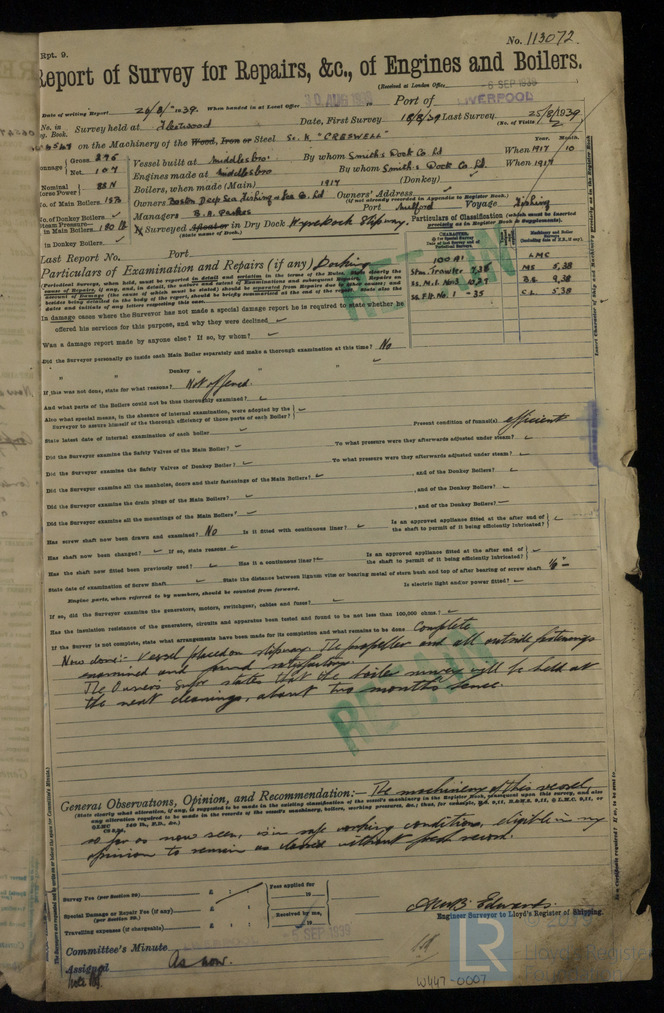 Rpt. 9.
No. 113072
Report of Survey for Repairs, &c., of Engines and Boilers.
(Received at London Office -6 SEP 1939
Date of writing Report 26/8/1939. When handed in at Local Office 30 AUG 1939 Port of LIVERPOOL
No. in Survey held at Fleetwood Date, First Survey 18/8/39 Last Survey 25/8/1939
Reg. Book. (No. of Visits 2
on the Machinery of the Wood, Iron or Steel Sc. K "CRESWELL"
Tonnage Gross 276 Vessel built at Middlesbro' By whom Smith's Dock Co Ld When 1917 10 Year. Month.
Net 107 Engines made at Middlesbro By whom Smith's Dock Co Ld. When 1917
Nominal Horse Power 88 N Boilers, when made (Main) 1917 (Donkey)
No. of Main Boilers Owners Boston Deep Sea Fishing & Ice Co. Ld Owners' Address
(if not already recorded in Appendix to Register Book.)
No. of Donkey Boilers Managers B. A. Parkes Port Milford Voyage Fishing
Steam Pressure in Main Boilers 180 lb Surveyed Afloat or in Dry Dock Wyredock Slipway.
(State name of Dock.)
in Donkey Boilers
Particulars of Classification (which must be inserted precisely as in Register Book & Supplements).
Last Report No. Port
100 A1 LMC
Stm. Trawler 7,38 MS 5,38
SS. M.L. No 3 10,27 B.S. 9,38
SS. F.D. No. 1 - 35 C.L. 5,38
Particulars of Examination and Repairs (if any) Docking
In damage cases where the Surveyor has not made a special damage report he is required to state whether he
offered his services for this purpose, and why they were declined
Was a damage report made by anyone else? If so, by whom?
Did the Surveyor personally go inside each Main Boiler separately and make a thorough examination at this time? No
" " Donkey " " "
If this was not done, state for what reasons? Not offered.
And what parts of the Boilers could not be thus thoroughly examined?
Also what special means, in the absence of internal examination, were adopted by the
Surveyor to assure himself of the thorough efficiency of those parts of each Boiler?
State latest date of internal examination of each boiler Present condition of funnel(s) efficient
Did the Surveyor examine the Safety Valves of the Main Boiler? To what pressure were they afterwards adjusted under steam?
Did the Surveyor examine the Safety Valves of Donkey Boiler? To what pressure were they afterwards adjusted under steam?
Did the Surveyor examine all the manholes, doors and their fastenings of the Main Boilers? , and of the Donkey Boilers?
Did the Surveyor examine the drain plugs of the Main Boilers? , and of the Donkey Boilers?
Did the Surveyor examine all the mountings of the Main Boilers? , and of the Donkey Boilers?
Has screw shaft now been drawn and examined? No Is it fitted with continuous liner? Is an approved appliance fitted at the after end of the shaft to permit of it being efficiently lubricated?
Has shaft now been changed? If so, state reasons
Has the shaft now fitted been previously used? Has it a continuous liner? Is an approved appliance fitted at the after end of the shaft to permit of it being efficiently lubricated?
State date of examination of Screw Shaft State the distance between lignum vitæ or bearing metal of stern bush and top of after bearing of screw shaft
Engine parts, when referred to by numbers, should be counted from forward. Is electric light and/or power fitted?
If so, did the Surveyor examine the generators, motors, switchgear, cables and fuses?
Has the insulation resistance of the generators, circuits and apparatus been tested and found to be not less than 100,000 ohms?
If the Survey is not complete, state what arrangements have been made for its completion and what remains to be done Complete
Now done:- Vessel placed on slipway. The propeller and all outside fastenings
examined and found satisfactory.
The Owners Supr states that the boiler survey will be held at
the next cleanings, about two months hence.
RETAIN
General Observations, Opinion, and Recommendation:— The machinery of this vessel,
(State clearly what alteration, if any, is suggested to be made in the existing classification of the vessel's machinery in the Register Book, consequent upon this survey, and also
so far as now seen, is in safe working condition, eligible in my
opinion to remain as classed without fresh record.
Survey Fee (per Section 29) £ : : Fees applied for
Special Damage or Repair Fee (if any) £ : : 19
(per Section 29.)
Travelling expenses (if chargeable) £ : : Received by me, 19
Edwards
Engineer Surveyor to Lloyd's Register of Shipping.
Committee's Minute 5 SEP 1939
Assigned As now.
LR
Lloyd's Register
Foundation
W447-0007